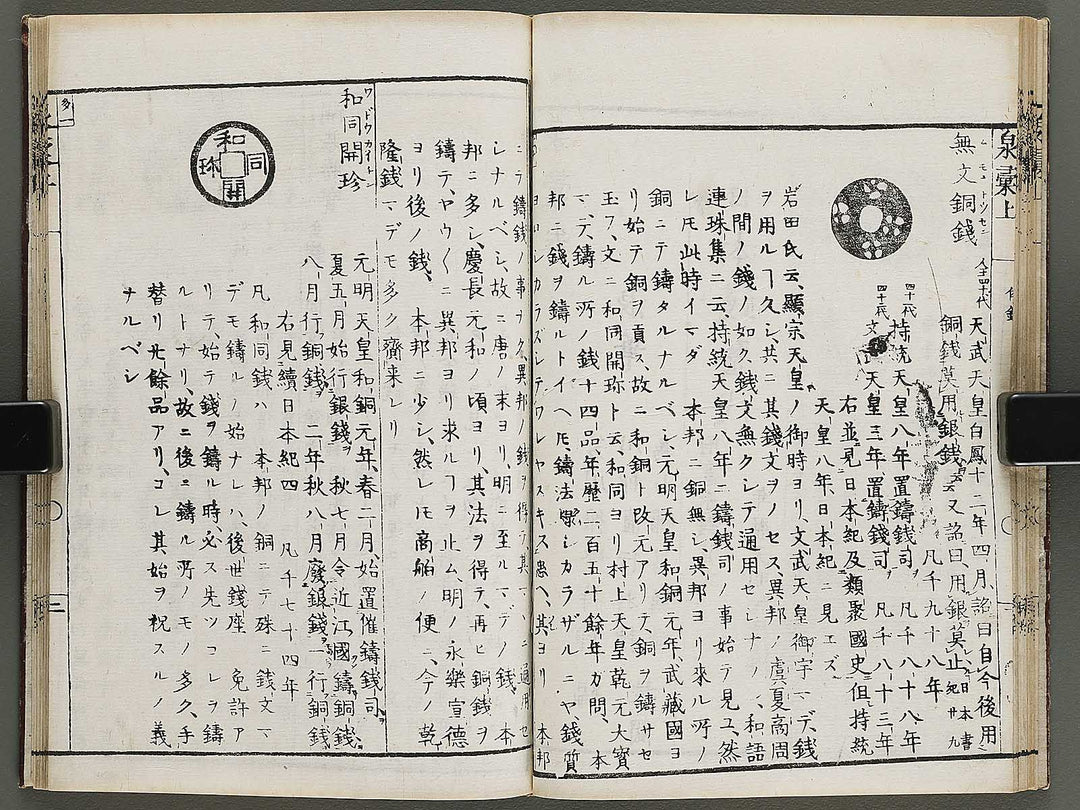 泉彙上
無文銅錢
ムモンドウセン
全四十代 天武天皇白鳳十二年四月詔曰自今後用
銅錢莫用銀錢又詔曰用銀莫止 日本書紀廿九
凡千九十八年
四十代 持統天皇八年置鑄錢司 凡千八十八年
四十二代 文 天皇三年置鑄錢司 凡千八十三年
右並見日本紀及類聚國史但持統
天皇八年日本紀ニ見エズ
岩田氏云顯宗天皇ノ御時ヨリ文武天皇御宇マデ錢
ヲ用ルヿ久シ共ニ其錢文ヲノセス異邦ノ虞夏商周
ノ間ノ錢ノ如ク錢文無クシテ通用セシナノ和語
連珠集ニ云持統天皇八年ニ鑄錢司ノ事始テ見ユ然
レ𪜈此時イマダ 本邦ニ銅無シ異邦ヨリ來ル所ノ
銅ニテ鑄タルナルベシ元明天皇和銅元年武藏國ヨ
リ始テ銅ヲ貢ス故ニ和銅ト改元アリテ銅ヲ鑄サセ
玉フ文ニ和同開珎ト云和同ヨリ村上天皇乾元大寳
マテ鑄ル所ノ錢十四品年歷二百五十餘年カ間 本
邦ニ錢ヲ鑄ルトイヘ𪜈鑄法 シカラザルニヤ錢質
ヨロシカラズシテワレヤスキ ヘ其ヨリ 本邦
ニテ鑄錢ノ事ナク異邦ノ錢ヲ得テ其マヽニ通用セ
シナルベシ故ニ唐ノ末ヨリ明ニ至ルマデノ錢 本
邦ニ多シ慶長元和ノ頃ヨリ其法ヲ得テ再ヒ銅錢ヲ
鑄テヤウ〱ニ異邦ヨリ求ルヿヲ止ム明ノ永樂宣德
ヨリ後ノ錢 本邦ニ少シ然レ𪜈商舶ノ便ニ今ノ乾
隆錢マデモ多ク齎来レリ
和同開珍
ワドウカイチン
和同開珎
元明天皇和銅元年春二月始置催鑄錢司
夏五月始行銀錢 秋七月令近江國鑄銅錢
八月行銅錢 二年秋八月廢銀錢一行銅錢
右見續日本紀四 凡千七十四年
凡和同錢ハ 本邦ノ銅ニテ殊ニ錢文マ
デモ鑄ルノ始ナレハ後世錢座 免許ア
リテ始テ錢ヲ鑄ル時必ス先ツコレヲ鑄
ルトナリ故ニ後ニ鑄ル所ノモノ多ク手
替リ𠀋餘品アリコレ其始ヲ祝スルノ義
ナルベシ
多一
三